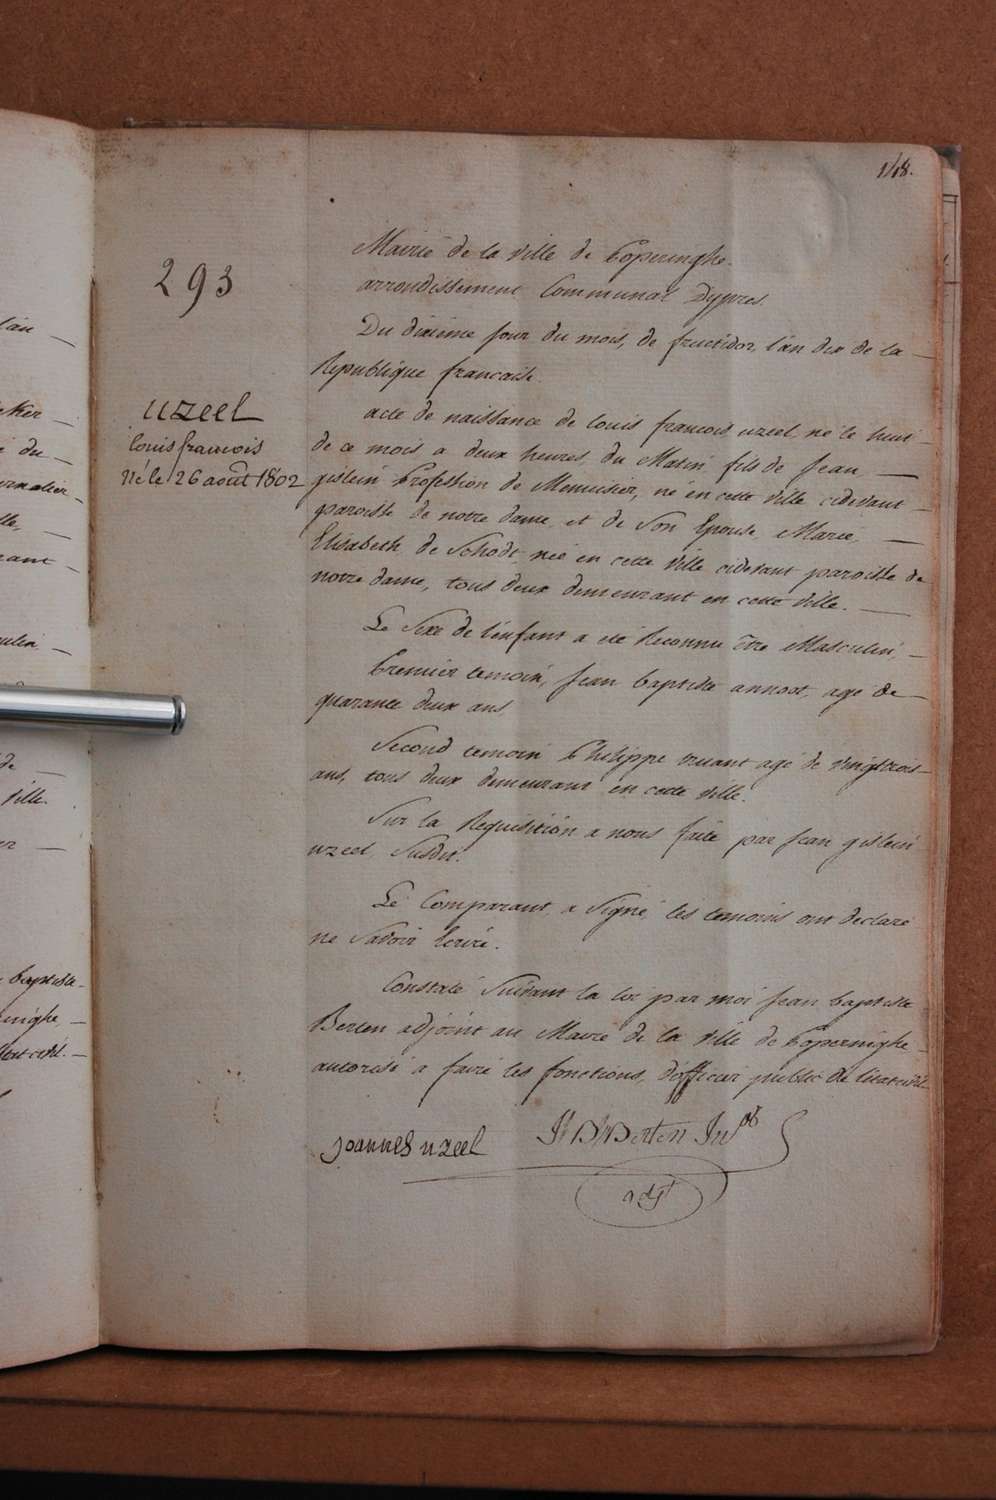 148.
293
uzeel
louis francois
Né le 26 aout 1802
Mairie de la ville de Poperinghe
arrondissement Communal Dypres.
Du dixieme jour du mois, de fructidor l'an dix de la
Republique francaise.
acte de naissance de louis francois uzeel, né le huit
de ce mois a deux heures, du Matin, fils de Jean
gislein Profession de Menuisier, né en cette ville cidevant
paroisse de notre dame, et de Son Epouse, Marie,
Elisabeth, de Schodt, née en cette ville cidevant paroisse de
notre dame, tous deux demeurant en cette ville.
Le Sexe de l'enfant a eté Reconnu être Masculin,
Premier temoin, Jean baptiste annoot, agé de
quarante deux ans.
Second temoin Philippe truant agé de vingt trois
ans, tous deux demeurant en cette ville.
Sur la Requisition a nous faite par Jean gislein
uzeel, Susdit.
Le Comparant, a Signé, les temoins ont declaré
ne Savoir Ecrire.
Constaté Suivant la loi par moi Jean baptiste
Berten adjoint au Maire de la ville de Poperinghe
autorisé a faire les fonctions, d'officier public de l'etat civil
joannes uzeel
J B Berten
adjt
l'an
du
ville.
baptiste